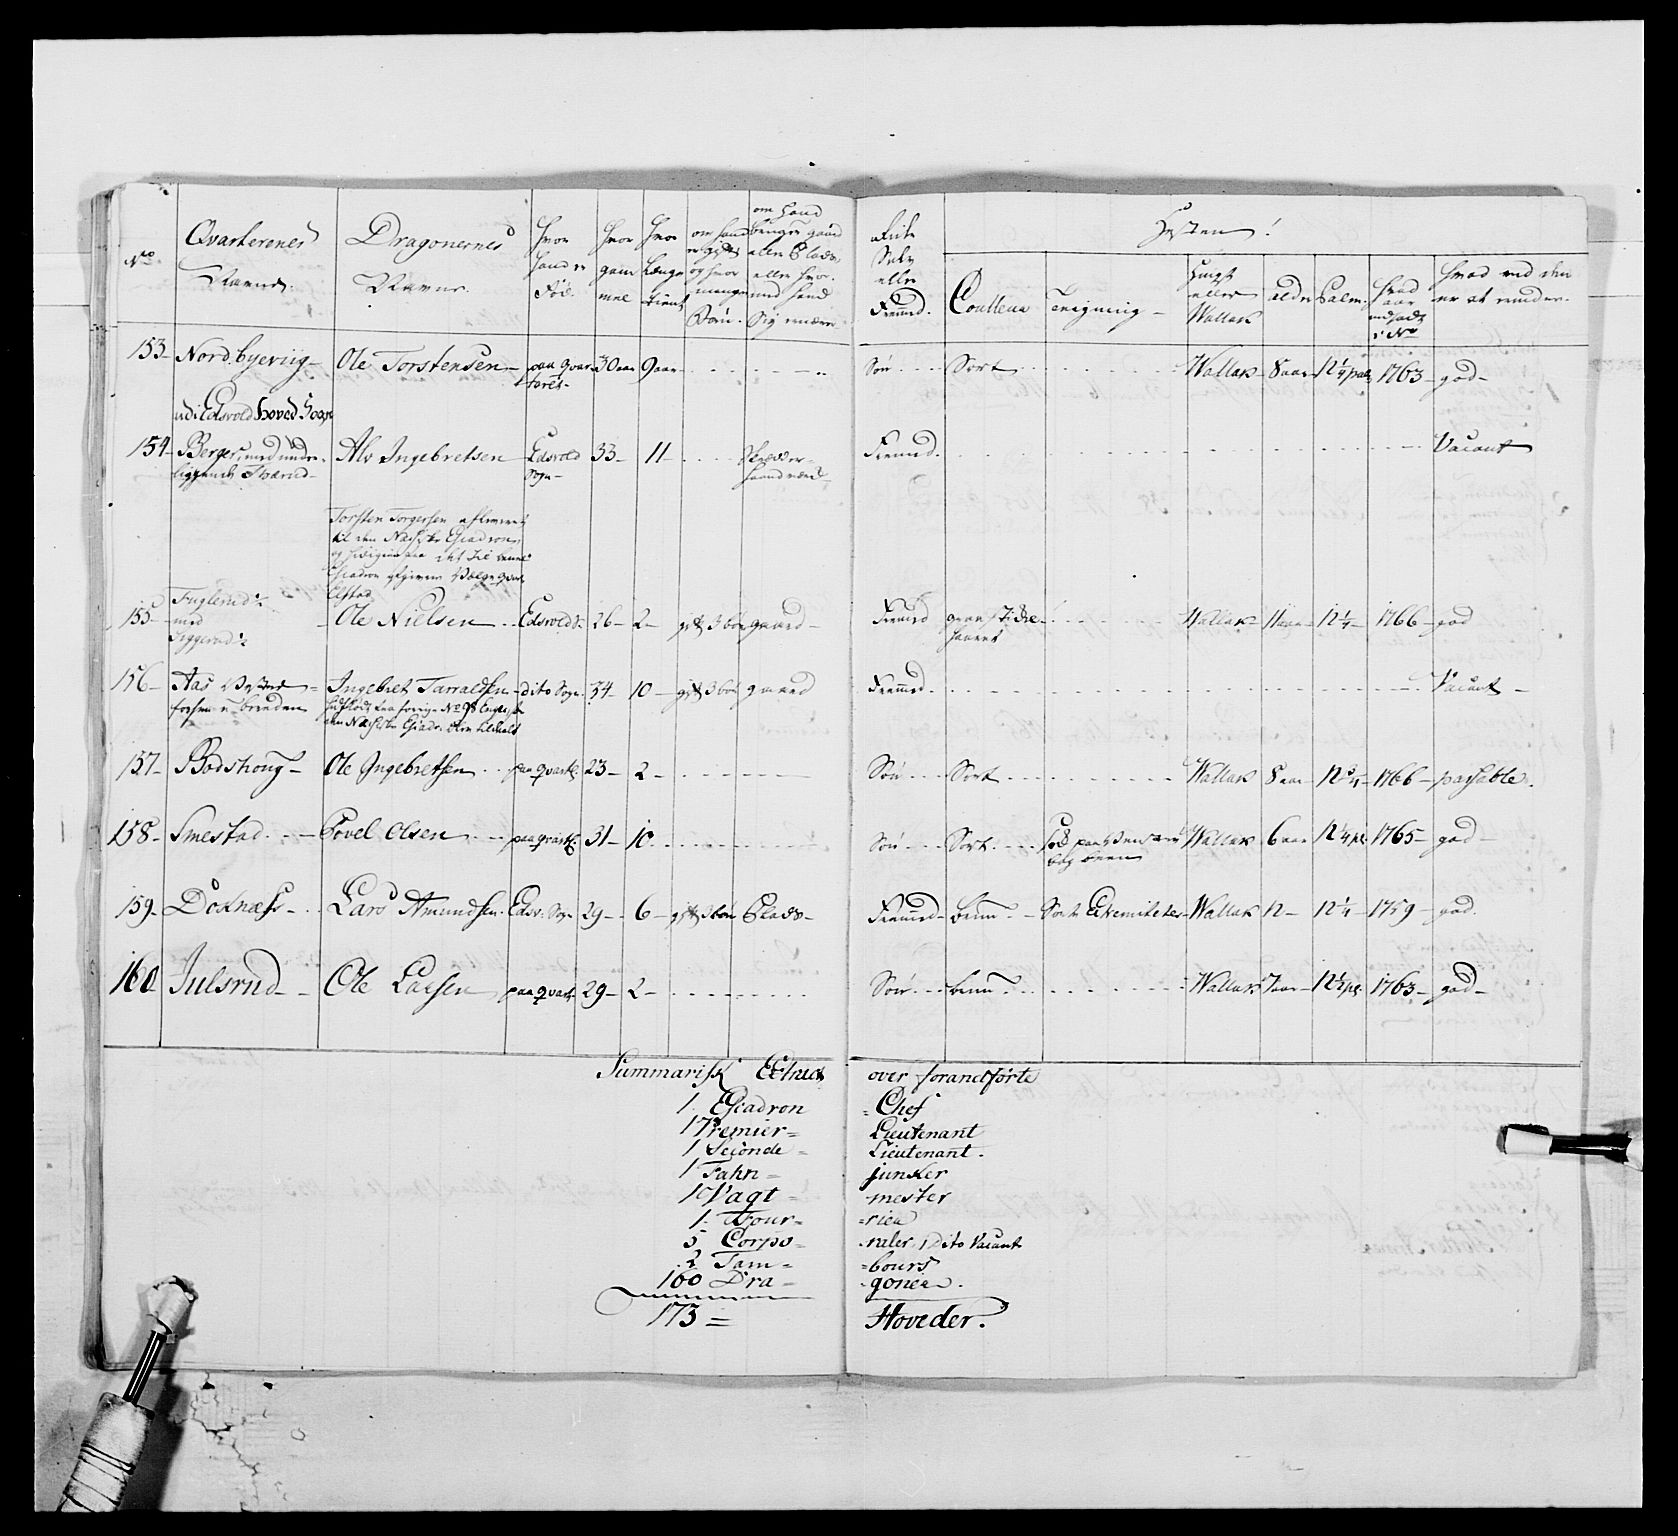 No
Qvarterenes Navne.
Dragonernes Navne.
Hvor hand er Fød.
Hvor gam mel
Hvor Længe tient
om hand er gift og hvor mange Børn.
om hand bruger gaard eller Plads eller hvor med hand Sig nærer
Fri
Selv
eller
Fremmed.
Hesten.
Couleur
Teigning
Hingst eller Wallak
alder
Palm.
Hvad aar indsadt i No
Hvad ved den er at erindre.
153 Nordbyeriig Ole Torstensen paa qvar terer 30 aar 9 aar Søn Sort Wallak 8 aar 12 1/4 palm 1763 god
udi Edsvold Hoved Sogn
154 Berger med under liggende Tværud Alv Ingebretsen Edsvold Sogn 33 11 Skrædder haandværk Fremmed Vacant
Torsten Torgersen afleveret
til den Næstste Escadron
og hidigien paa det til benevnte
Escadron afgivne qvar
Elstad
155 Fuglerud 1/2 med Ole Nielsen Edsvold S. 26 2 gift 3 børn gaard Fremmed graa stikkel haaret Wallak 11 aar 12 1/4 1766 god
156 Aas Ingebret Tarraldsen dito Sogn 34 10 gift 3 børn gaard Fremmed Vacant
157 Bodshoug Ole Ingebretsen paa qvart. 23 2 Søn Sort Wallak 8 aar 12 3/4 1766 passable.
158 Smestad Povel Olsen paa qvart. 31 10 Søn Sort Wallak 6 aar 12 1/4 pl. 1765 god
159 Doknæss Lars Amundsen Edsv. Sogn 29 6 gift 3 børn Plads Fremmed bruun Sort Extremiteter Wallak 12 12 1/4 1759 god.
160 Julsrud Ole Larsen paa qvart. 29 2 Søn bruun Wallak 7 aar 12 1/2 pl. 1763 god
Summarisk Extract over foranførte
1. Escadron = Chef
1 Premier = Lieutenant
1 Seconde = Lieutenant.
1 Fahn = junker
1 Vagt = mester
1. Four = rier
5 Corpo = raler, 1 Dito Vacant
2 Tam = bours
160 Dra = goner.
173 = Hoveder.